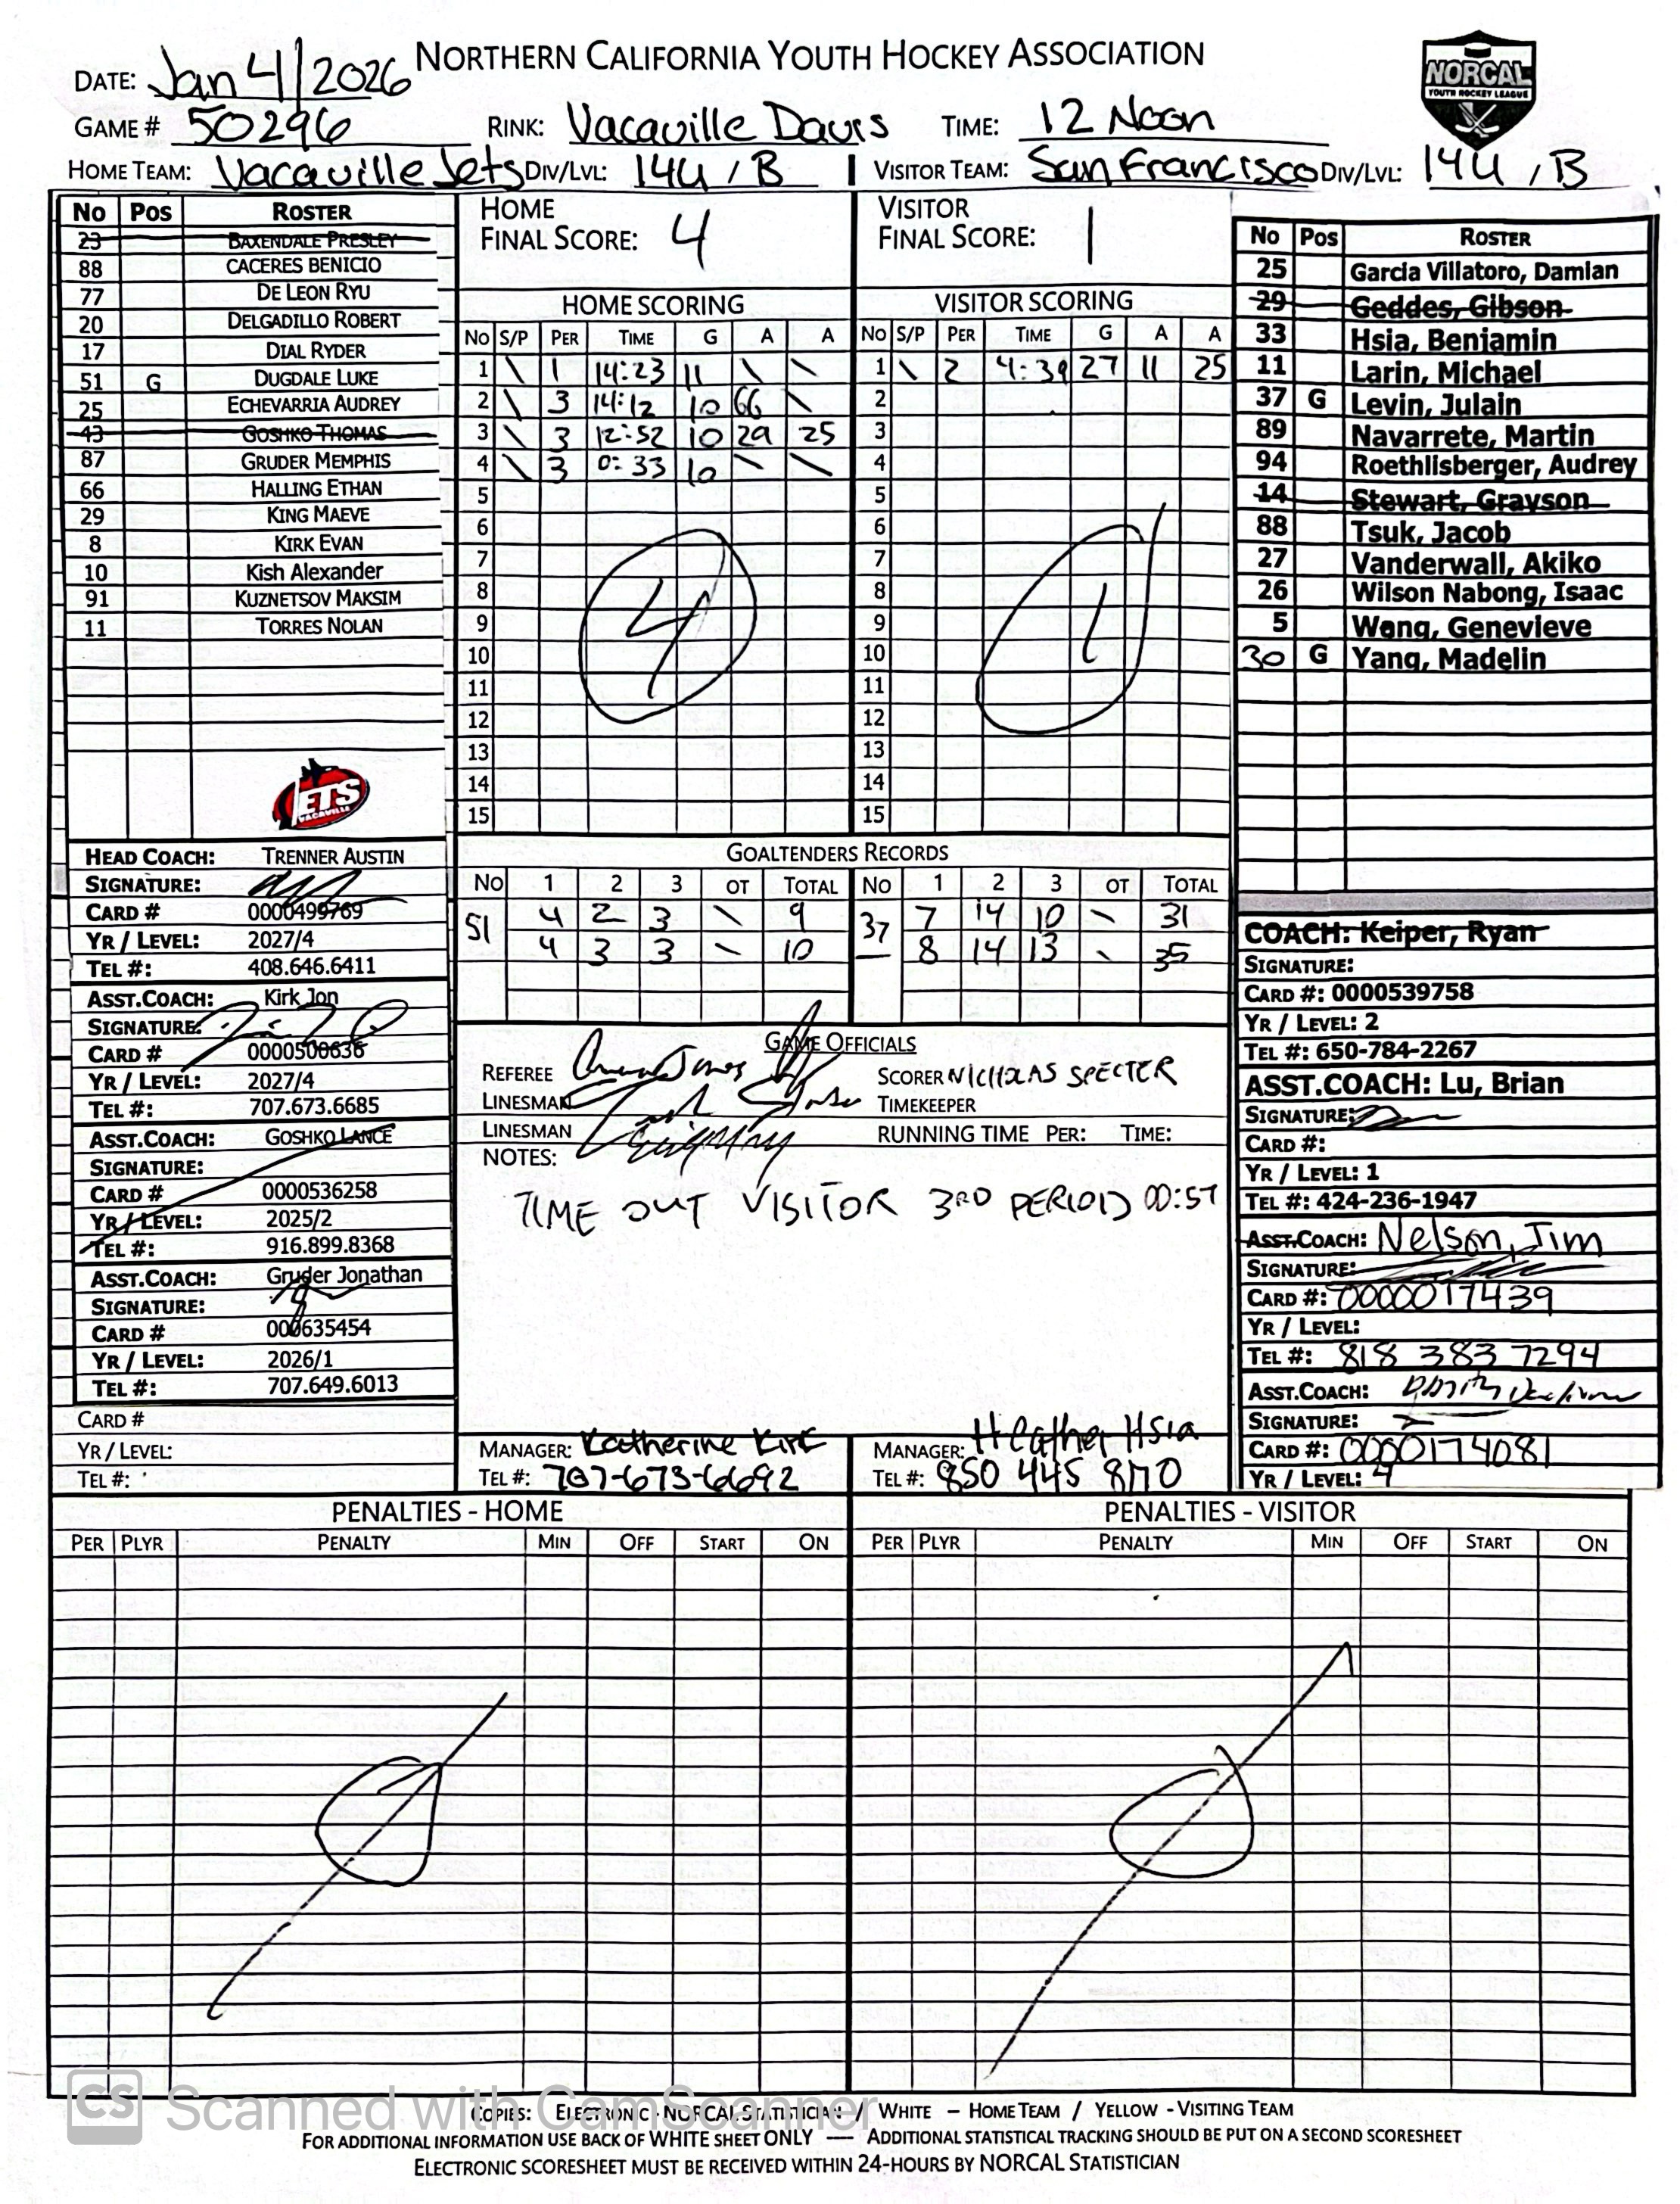 NORTHERN CALIFORNIA YOUTH HOCKEY ASSOCIATION
DATE: Jan 4/2026
NORCAL
YOUTH HOCKEY LEAGUE
GAME # 50296 RINK: Vacaville Davis TIME: 12 Noon
HOME TEAM: Vacaville Jets DIV/LVL: 14U / B VISITOR TEAM: San Francisco DIV/LVL: 14U / B
No Pos ROSTER
23 BAXENDALE PRESLEY
88 CACERES BENICIO
77 DE LEON RYU
20 DELGADILLO ROBERT
17 DIAL RYDER
51 G DUGDALE LUKE
25 ECHEVARRIA AUDREY
43 GOSHKO THOMAS
87 GRUDER MEMPHIS
66 HALLING ETHAN
29 KING MAEVE
8 KIRK EVAN
10 Kish Alexander
91 KUZNETSOV MAKSIM
11 TORRES NOLAN
JETS
VACAVILLE
HEAD COACH: TRENNER AUSTIN
SIGNATURE:
CARD # 0000499769
YR / LEVEL: 2027/4
TEL #: 408.646.6411
ASST.COACH: Kirk Jon
SIGNATURE:
CARD # 0000500636
YR / LEVEL: 2027/4
TEL #: 707.673.6685
ASST.COACH: GOSHKO LANCE
SIGNATURE:
CARD # 0000536258
YR / LEVEL: 2025/2
TEL #: 916.899.8368
ASST.COACH: Gruder Jonathan
SIGNATURE:
CARD # 000635454
YR / LEVEL: 2026/1
TEL #: 707.649.6013
CARD #
YR / LEVEL:
TEL #:
HOME
FINAL SCORE: 4
VISITOR
FINAL SCORE: 1
HOME SCORING
No S/P PER TIME G A A
1 \ 1 14:23 11 \ \
2 \ 3 14:12 10 66 \
3 \ 3 12:52 10 29 25
4 \ 3 0:33 10 \ \
5
6
7
8
9
10
11
12
13
14
15
4
VISITOR SCORING
No S/P PER TIME G A A
1 \ 2 4:39 27 11 25
2
3
4
5
6
7
8
9
10
11
12
13
14
15
1
GOALTENDERS RECORDS
No 1 2 3 OT TOTAL No 1 2 3 OT TOTAL
51 4 2 3 \ 9 37 7 14 10 \ 31
4 3 3 \ 10 8 14 13 \ 35
GAME OFFICIALS
REFEREE SCORER NICHOLAS SPECTER
LINESMAN TIMEKEEPER
LINESMAN RUNNING TIME PER: TIME:
NOTES:
TIME OUT VISITOR 3RD PERIOD 00:57
MANAGER: Katherine Kirk MANAGER: Heather Hsia
TEL #: 707-673-6692 TEL #: 850 445 8170
No Pos ROSTER
25 Garcia Villatoro, Damian
29 Geddes, Gibson
33 Hsia, Benjamin
11 Larin, Michael
37 G Levin, Julain
89 Navarrete, Martin
94 Roethlisberger, Audrey
14 Stewart, Grayson
88 Tsuk, Jacob
27 Vanderwall, Akiko
26 Wilson Nabong, Isaac
5 Wang, Genevieve
30 G Yang, Madelin
COACH: Keiper, Ryan
SIGNATURE:
CARD #: 0000539758
YR / LEVEL: 2
TEL #: 650-784-2267
ASST.COACH: Lu, Brian
SIGNATURE:
CARD #:
YR / LEVEL: 1
TEL #: 424-236-1947
ASST.COACH: Nelson, Jim
SIGNATURE:
CARD #: 0000017439
YR / LEVEL:
TEL #: 818 383 7294
ASST.COACH:
SIGNATURE:
CARD #: 0000174081
YR / LEVEL: 4
PENALTIES - HOME PENALTIES - VISITOR
PER PLYR PENALTY MIN OFF START ON PER PLYR PENALTY MIN OFF START ON
CS Scanned with CamScanner
COPIES: ELECTRONIC - NORCAL STATISTICIAN / WHITE – HOME TEAM / YELLOW - VISITING TEAM
FOR ADDITIONAL INFORMATION USE BACK OF WHITE SHEET ONLY ---- ADDITIONAL STATISTICAL TRACKING SHOULD BE PUT ON A SECOND SCORESHEET
ELECTRONIC SCORESHEET MUST BE RECEIVED WITHIN 24-HOURS BY NORCAL STATISTICIAN